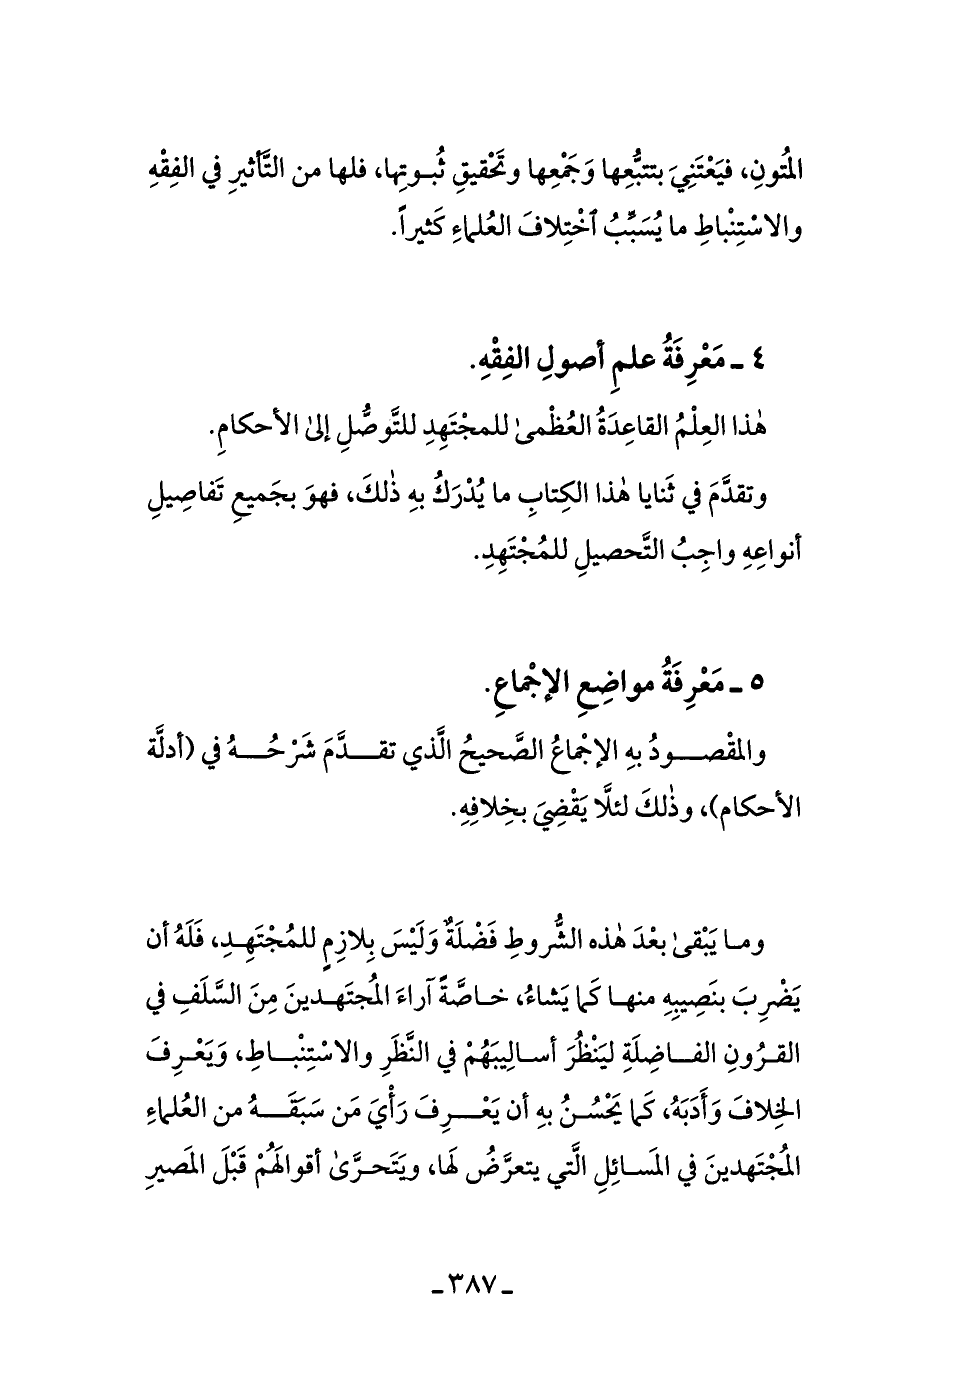 المُتونِ، فيَعْتَنِيَ بتتبُّعِها وَجَمْعِها وتَحْقيقِ ثُبوتِها، فلها من التَّأثيرِ في الفِقْهِ
والاسْتِنْباطِ ما يُسَبِّبُ ٱخْتِلافَ العُلماءِ كَثيراً.
٤ ـ مَعْرِفَةُ علمِ أصولِ الفِقْهِ.
هٰذا العِلْمُ القاعِدَةُ العُظْمىٰ للمجْتَهِدِ للتَّوصُّلِ إلىٰ الأحكامِ.
وتقدَّمَ في ثَنايا هٰذا الكِتابِ ما يُدْرَكُ بهِ ذٰلكَ، فهوَ بجَميعِ تَفاصِيلِ
أنواعِهِ واجِبُ التَّحصيلِ للمُجْتَهِدِ.
٥ ـ مَعْرِفَةُ مواضِعِ الإجْماعِ.
والمقْصودُ بهِ الإجْماعُ الصَّحيحُ الَّذي تقدَّمَ شَرْحُهُ في (أدلَّة
الأحكام)، وذٰلكَ لئلَّا يَقْضِيَ بخِلافِهِ.
وما يَبْقىٰ بعْدَ هٰذه الشُّروطِ فَضْلَةٌ وَلَيْسَ بِلازِمٍ للمُجْتَهِدِ، فَلَهُ أن
يَضْرِبَ بنَصِيبِهِ منها كَما يَشاءُ، خاصَّةً آراءَ المُجتَهدينَ مِنَ السَّلَفِ في
القرُونِ الفاضِلَةِ ليَنْظُرَ أسالِيبَهُمْ في النَّظَرِ والاسْتِنْباطِ، وَيَعْرِفَ
الخِلافَ وَأَدَبَهُ، كَما يَحْسُنُ بهِ أن يَعْرِفَ رَأْيَ مَن سَبَقَهُ من العُلماءِ
المُجْتَهدينَ في المَسائِلِ الَّتي يتعرَّضُ لَها، ويَتَحرَّىٰ أقوالَهُمْ قَبْلَ المَصيرِ
ـ ٣٨٧ ـ